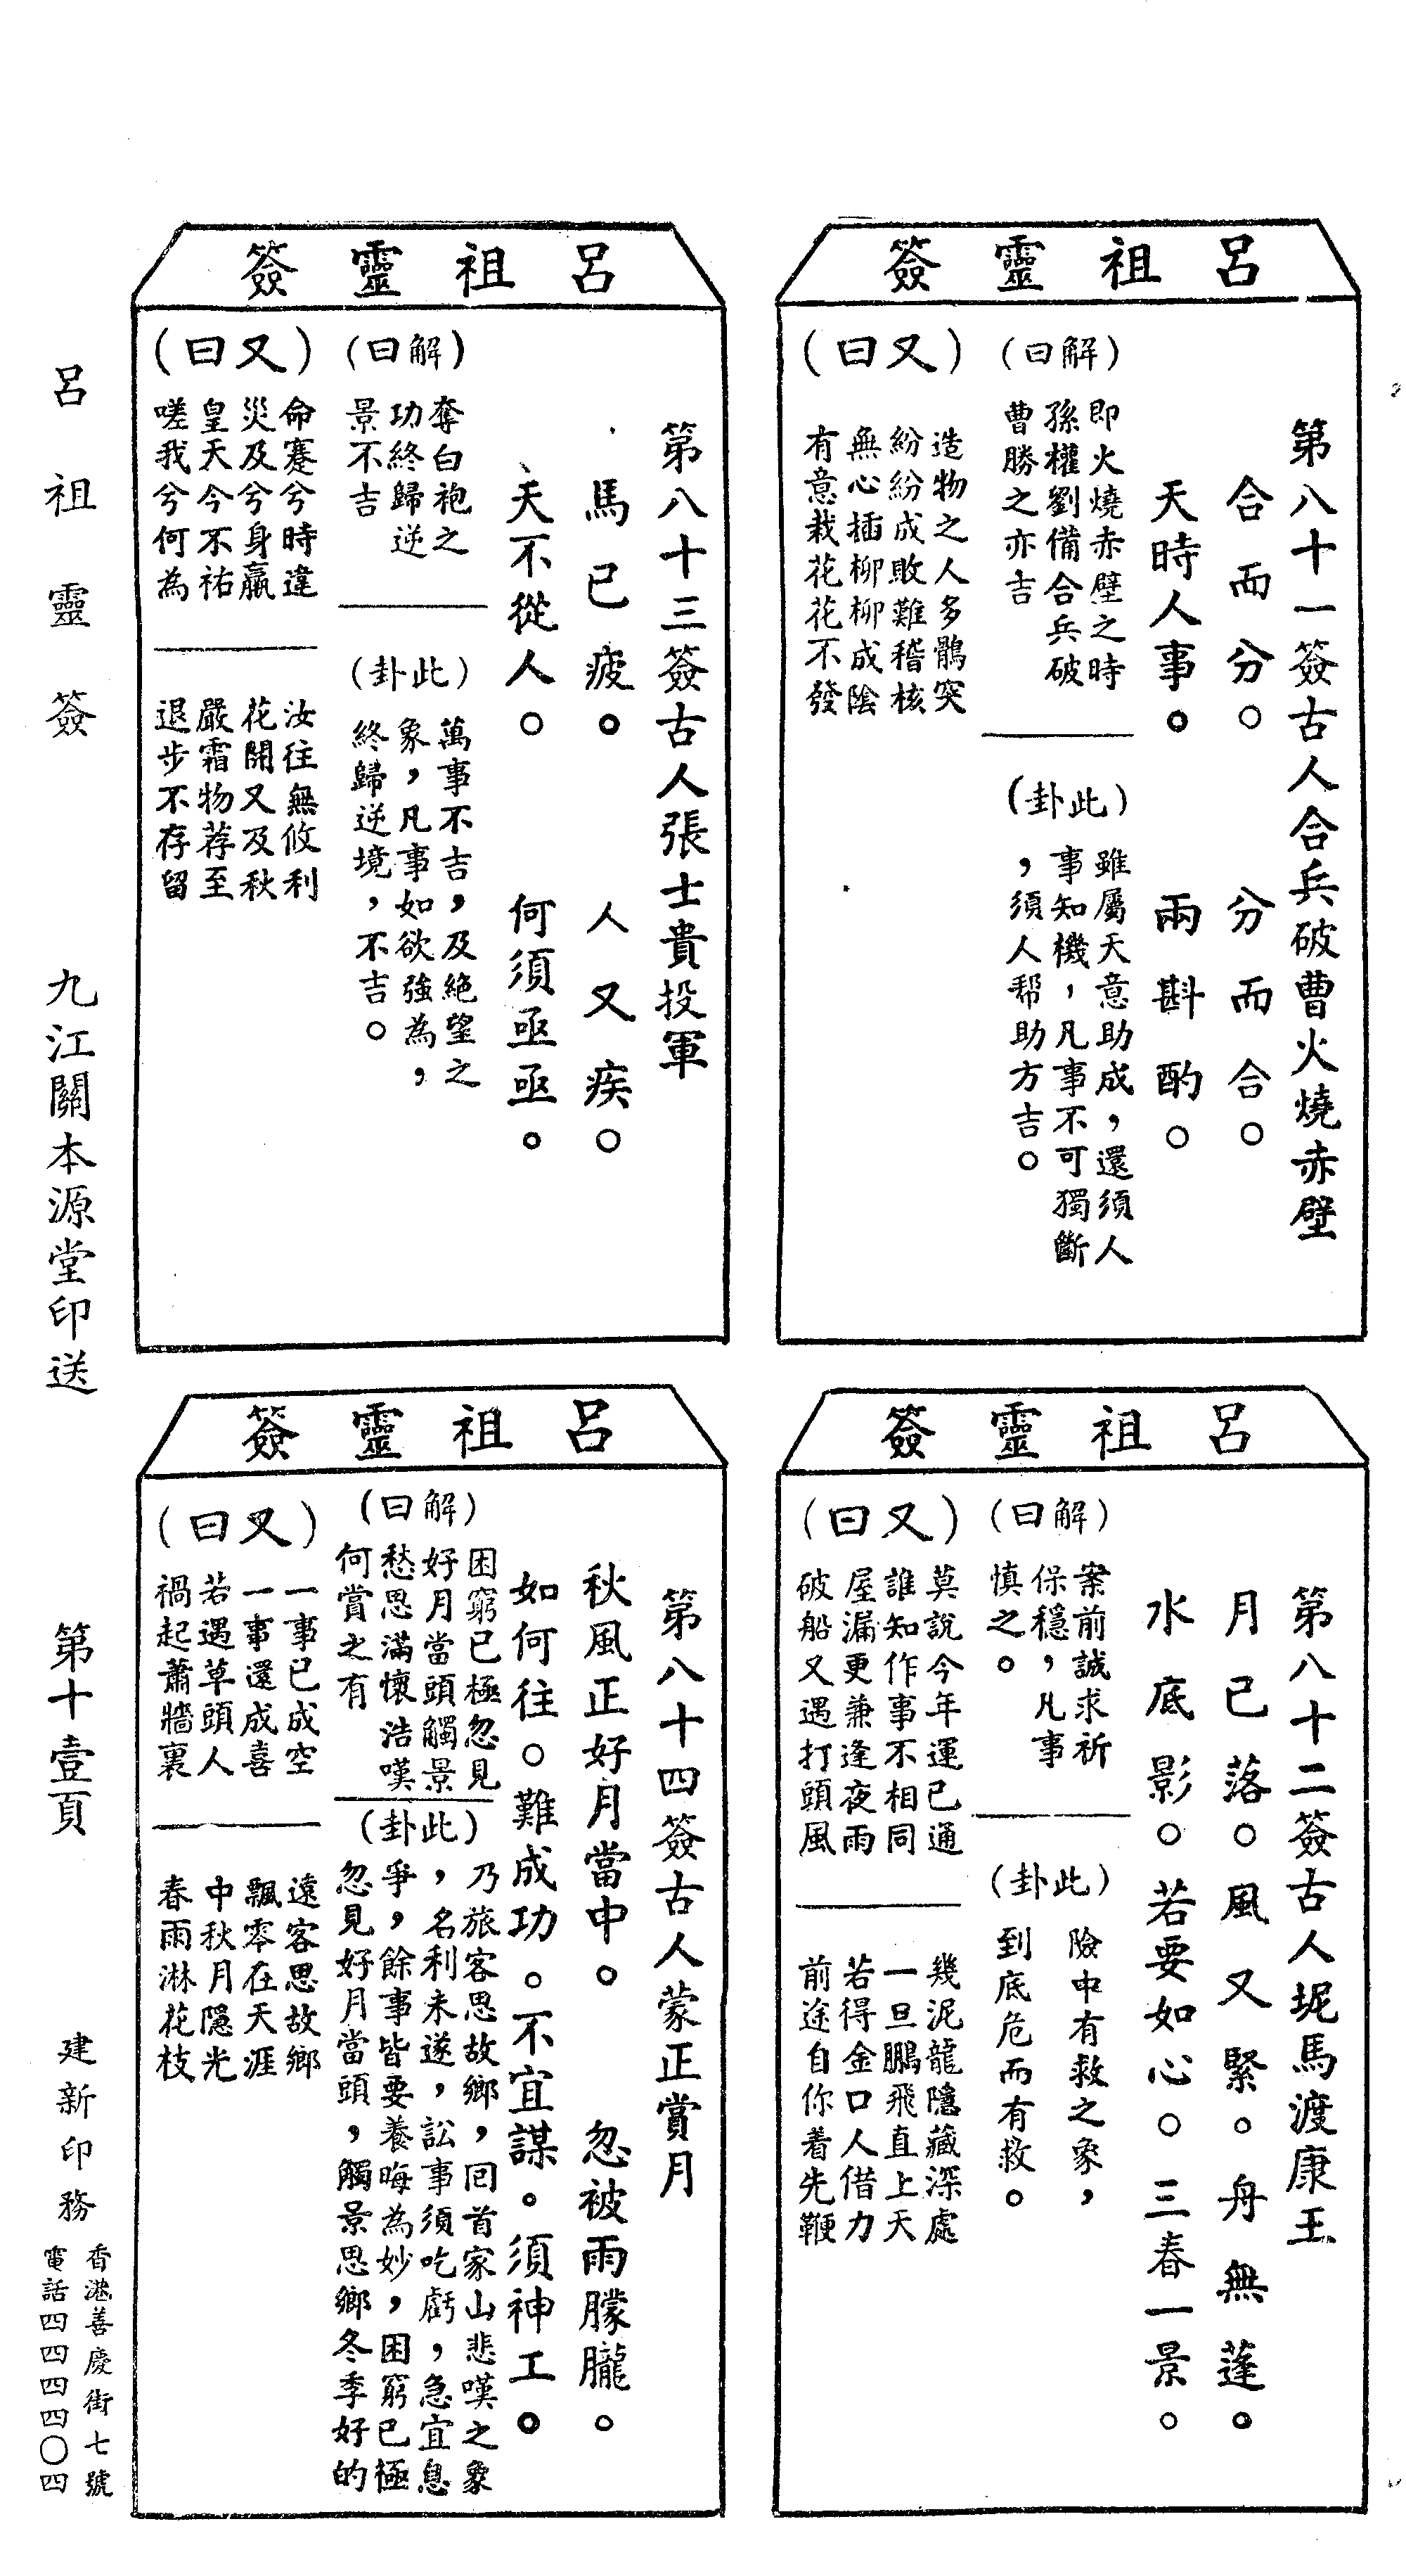 呂祖靈簽
第八十一簽古人合兵破曹火燒赤壁
合而分。分而合。
天時人事。兩斟酌。
(解曰)
即火燒赤壁之時
孫權劉備合兵破
曹勝之亦吉
(此卦)
雖屬天意助成，還須人
事知機，凡事不可獨斷
，須人帮助方吉。
(又曰)
造物之人多鶻突
紛紛成敗難稽核
無心插柳柳成陰
有意栽花花不發
呂祖靈簽
第八十二簽古人坭馬渡康王
月已落。風又緊。舟無蓬。
水底影。若要如心。三春一景。
(解曰)
案前誠求祈
保穩，凡事
慎之。
(此卦)
險中有救之象，
到底危而有救。
(又曰)
莫說今年運已通
誰知作事不相同
屋漏更兼逢夜雨
破船又遇打頭風
幾泥龍隱藏深處
一旦鵬飛直上天
若得金口人借力
前途自你着先鞭
呂祖靈簽
第八十三簽古人張士貴投軍
馬已疲。人又疾。
天不從人。何須亟亟。
(解曰)
奪白袍之
功終歸逆
景不吉
(此卦)
萬事不吉，及絕望之
象，凡事如欲強為，
終歸逆境，不吉。
(又曰)
命蹇兮時違
災及兮身羸
皇天今不祐
嗟我兮何為
汝往無攸利
花開又及秋
嚴霜物荐至
退步不存留
呂祖靈簽
第八十四簽古人蒙正賞月
秋風正好月當中。忽被雨朦朧。
如何往。難成功。不宜謀。須神工。
(解曰)
困窮已極忽見
好月當頭觸景
愁思滿懷浩嘆
何賞之有
(此卦)
乃旅客思故鄉，囘首家山悲嘆之象
，名利未遂，訟事須吃虧，急宜息
爭，餘事皆要養晦為妙，困窮已極
忽見好月當頭，觸景思鄉冬季好的
(又曰)
一事已成空
一事還成喜
若遇草頭人
禍起蕭牆裏
遠客思故鄉
飄零在天涯
中秋月隱光
春雨淋花枝
呂祖靈簽
九江關本源堂印送
第十壹頁
建新印務
香港善慶街七號
電話四四四四〇四